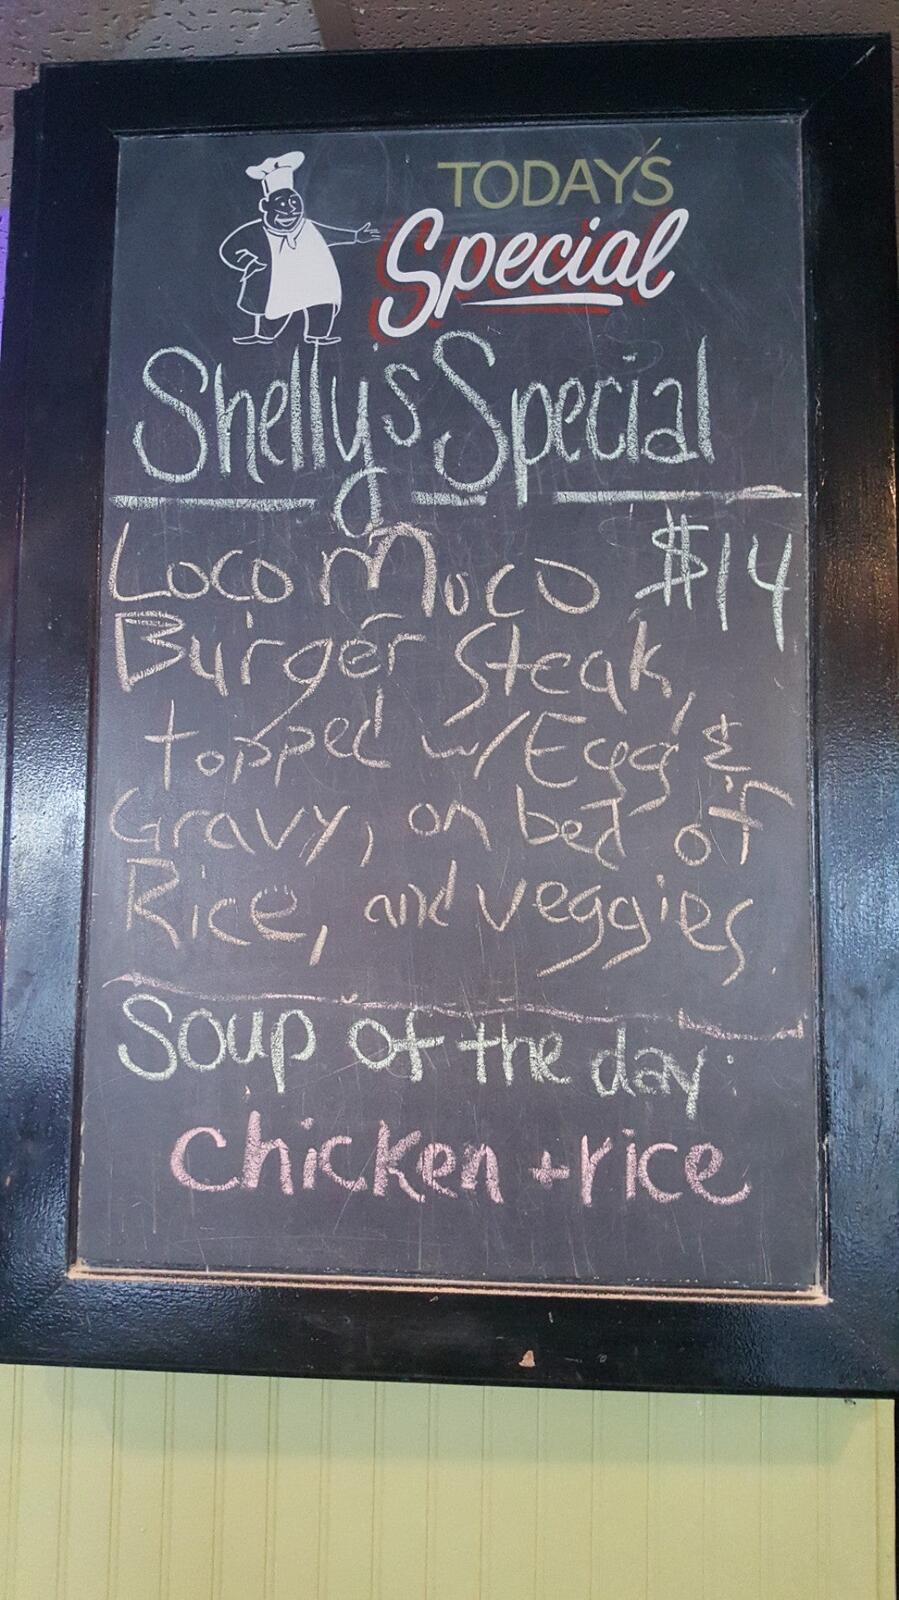 TODAY'S
Special
Shelly's Special
Loco Moco $14
Burger Steak,
topped w/Egg &
Gravy, on bed of
Rice, and veggies
Soup of the day:
chicken + rice